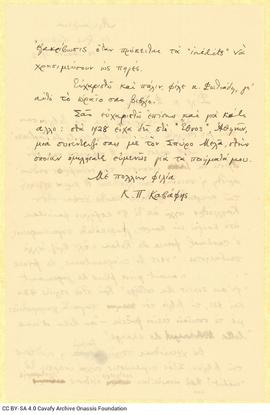 ἐξακρίβωσις ὅταν πρόκειται τὰ "inédits" νὰ
χρησιμεύσουν ὡς πηγές.
Εὐχαριστῶ καὶ πάλιν, φίλε κ. Φωτιάδη, γι'
αὐτὸ τὸ ὡραῖο σας βιβλίο.
Σᾶς εὐχαριστῶ ἐπίσης καὶ γιὰ κάτι
ἄλλο: στὰ 1928 εἶχα δῆ στὸ "Ἔθνος" Ἀθηνῶν,
μιὰ συνέντευξί σας με τὸν Σπύρο Μελᾶ, στὴν
ὁποίαν ὁμιλήσατε εὐμενῶς γιὰ τὰ ποιήματά μου.
Μὲ πολλὴν φιλία
Κ. Π. Καβάφης
CC BY-SA 4.0 Cavafy Archive Onassis Foundation